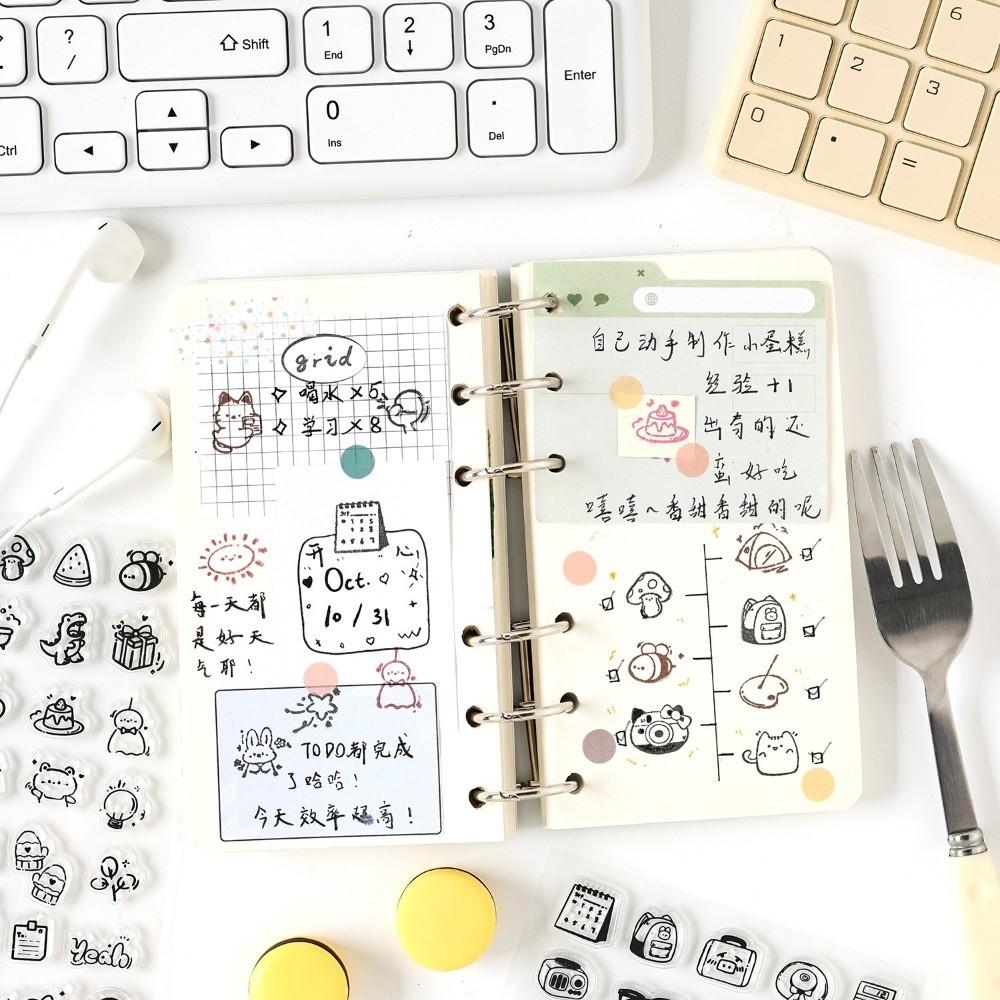 ?
/
Shift
1
End
2
3
PgDn
Enter
0
Ins
.
Del
Ctrl
6
1
2
3
0
.
=
grid
喝水×5
学习×8
开心
Oct.
10/31
每一天都
是好天
气耶!
TODO都完成
了哈哈!
今天效率超高!
自己动手制作小蛋糕
经验+1
出奇的还
蛮好吃
嘻嘻~香甜香甜的呢
Yeah